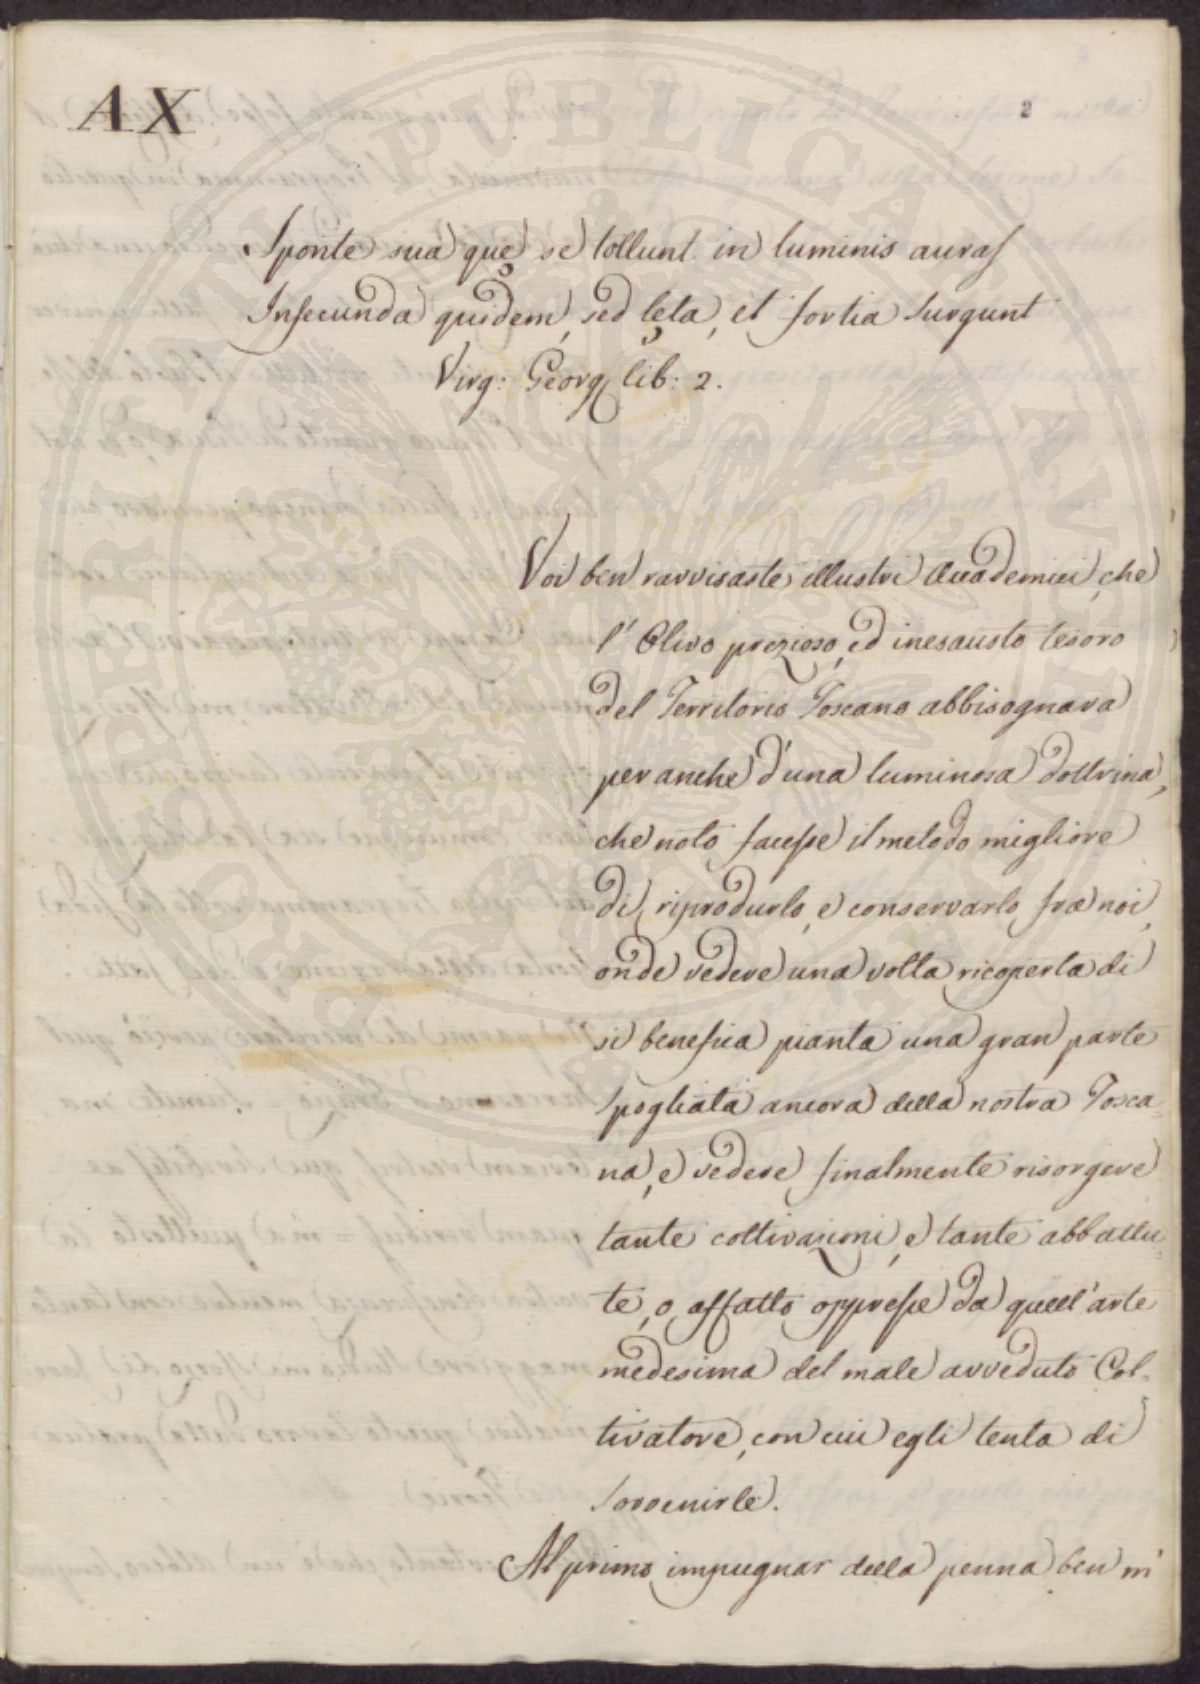 AX
2
Sponte sua quę se tollunt in luminis auras
Infecunda quidem, sed lęta, et fortia surgunt
Virg: Georg lib: 2.
Voi ben ravvisaste illustri Accademici, che
l'Olivo prezioso, ed inesausto tesoro
del Territorio Toscano abbisognava
per anche d'una luminosa dottrina,
che noto facesse il metodo migliore
di riprodurlo, e conservarlo fra noi,
onde vedere una volta ricoperta di
sì benefica pianta una gran parte
spogliata ancora della nostra Tosca
na, e vedere finalmente risorgere
tante coltivazioni, e tante abbattu
te, o affatto oppresse da quell'arte
medesima del male avveduto Col-
tivatore, con cui egli tenta di
sovvenirle.
Al primo impugnar della penna ben m'
PROPRIETATI PVBLICAE AVGENDAE